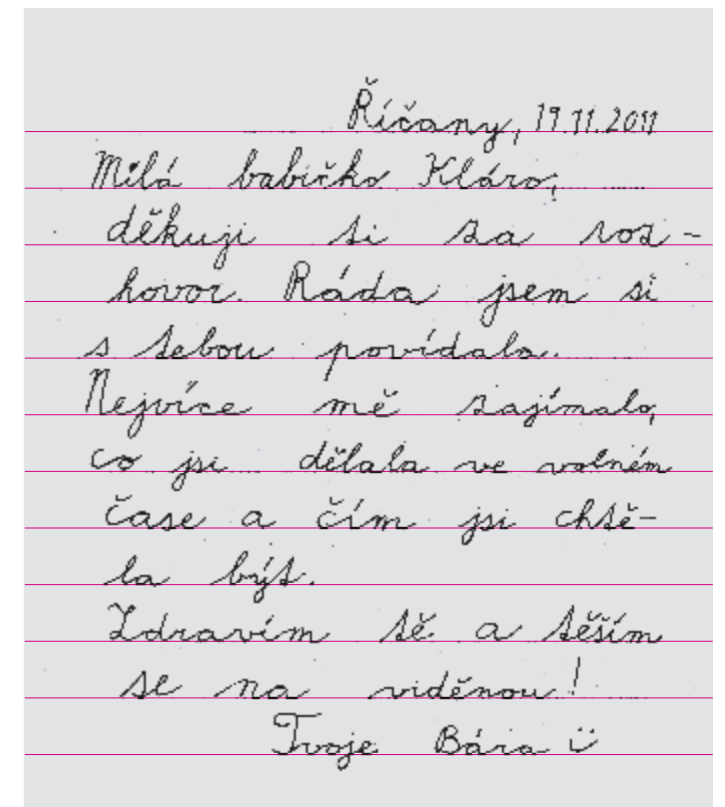 Říčany, 19.11.2011
Milá babičko Kláro,
děkuji ti za roz-
hovor. Ráda jsem si
s tebou povídala.
Nejvíce mě zajímalo,
co jsi dělala ve volném
čase a čím jsi chtě-
la být.
Zdravím tě a těším
se na viděnou!
Tvoje Bára ü